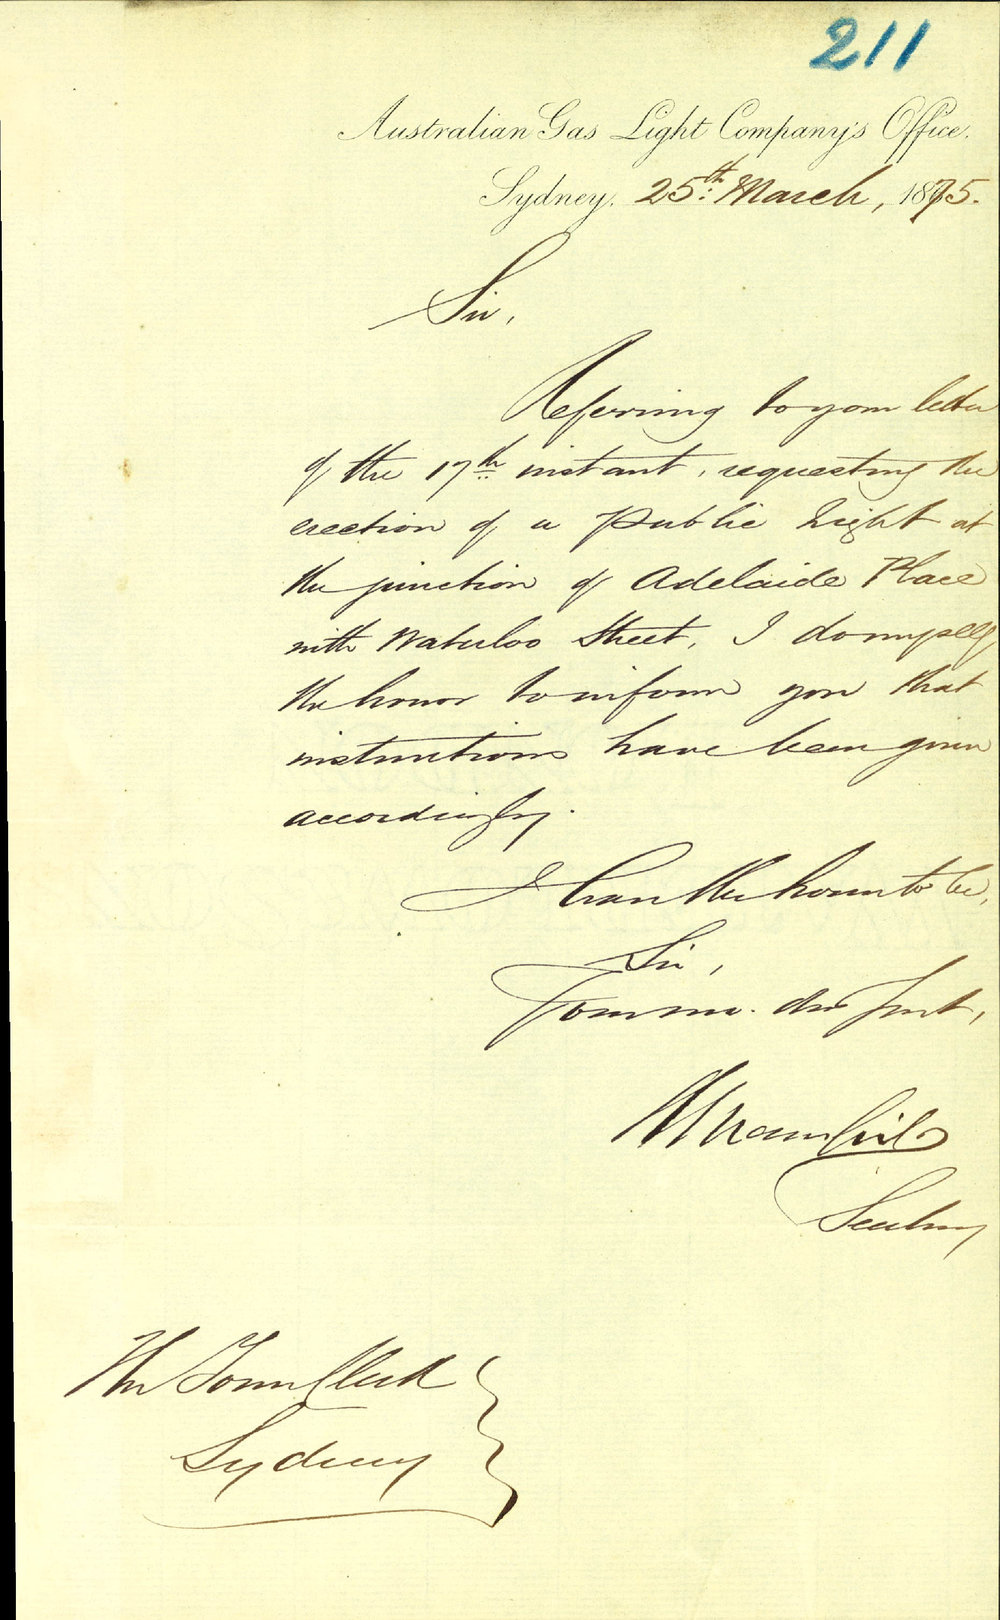 211
Australian Gas Light Company's Office.
Sydney. 25th March, 1875.
Sir,
Referring to your letter
of the 17th instant, requesting the
erection of a Public Light at
the junction of Adelaide Place
with Waterloo Street, I do myself
the honor to inform you that
instructions have been given
accordingly.
I have the honor to be,
Sir,
Your mo. obt Servt,
Secretary
The Town Clerk
Sydney